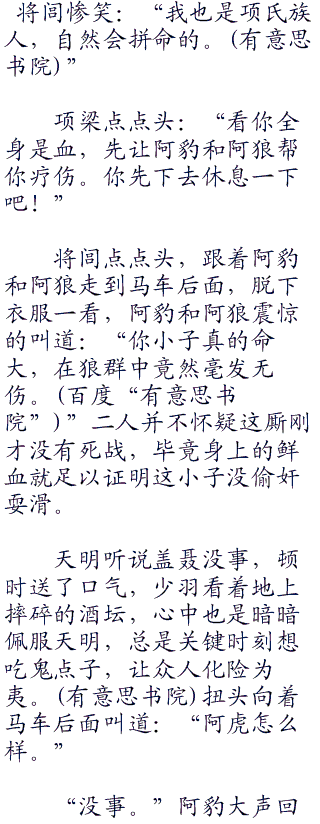 将闾惨笑：“我也是项氏族
人，自然会拼命的。(有意思
书院)”
项梁点点头：“看你全
身是血，先让阿豹和阿狼帮
你疗伤。你先下去休息一下
吧！”
将闾点点头，跟着阿豹
和阿狼走到马车后面，脱下
衣服一看，阿豹和阿狼震惊
的叫道：“你小子真的命
大，在狼群中竟然毫发无
伤。(百度“有意思书
院”)”二人并不怀疑这厮刚
才没有死战，毕竟身上的鲜
血就足以证明这小子没偷奸
耍滑。
天明听说盖聂没事，顿
时送了口气，少羽看着地上
摔碎的酒坛，心中也是暗暗
佩服天明，总是关键时刻想
吃鬼点子，让众人化险为
夷。(有意思书院)扭头向着
马车后面叫道：“阿虎怎么
样。”
“没事。”阿豹大声回